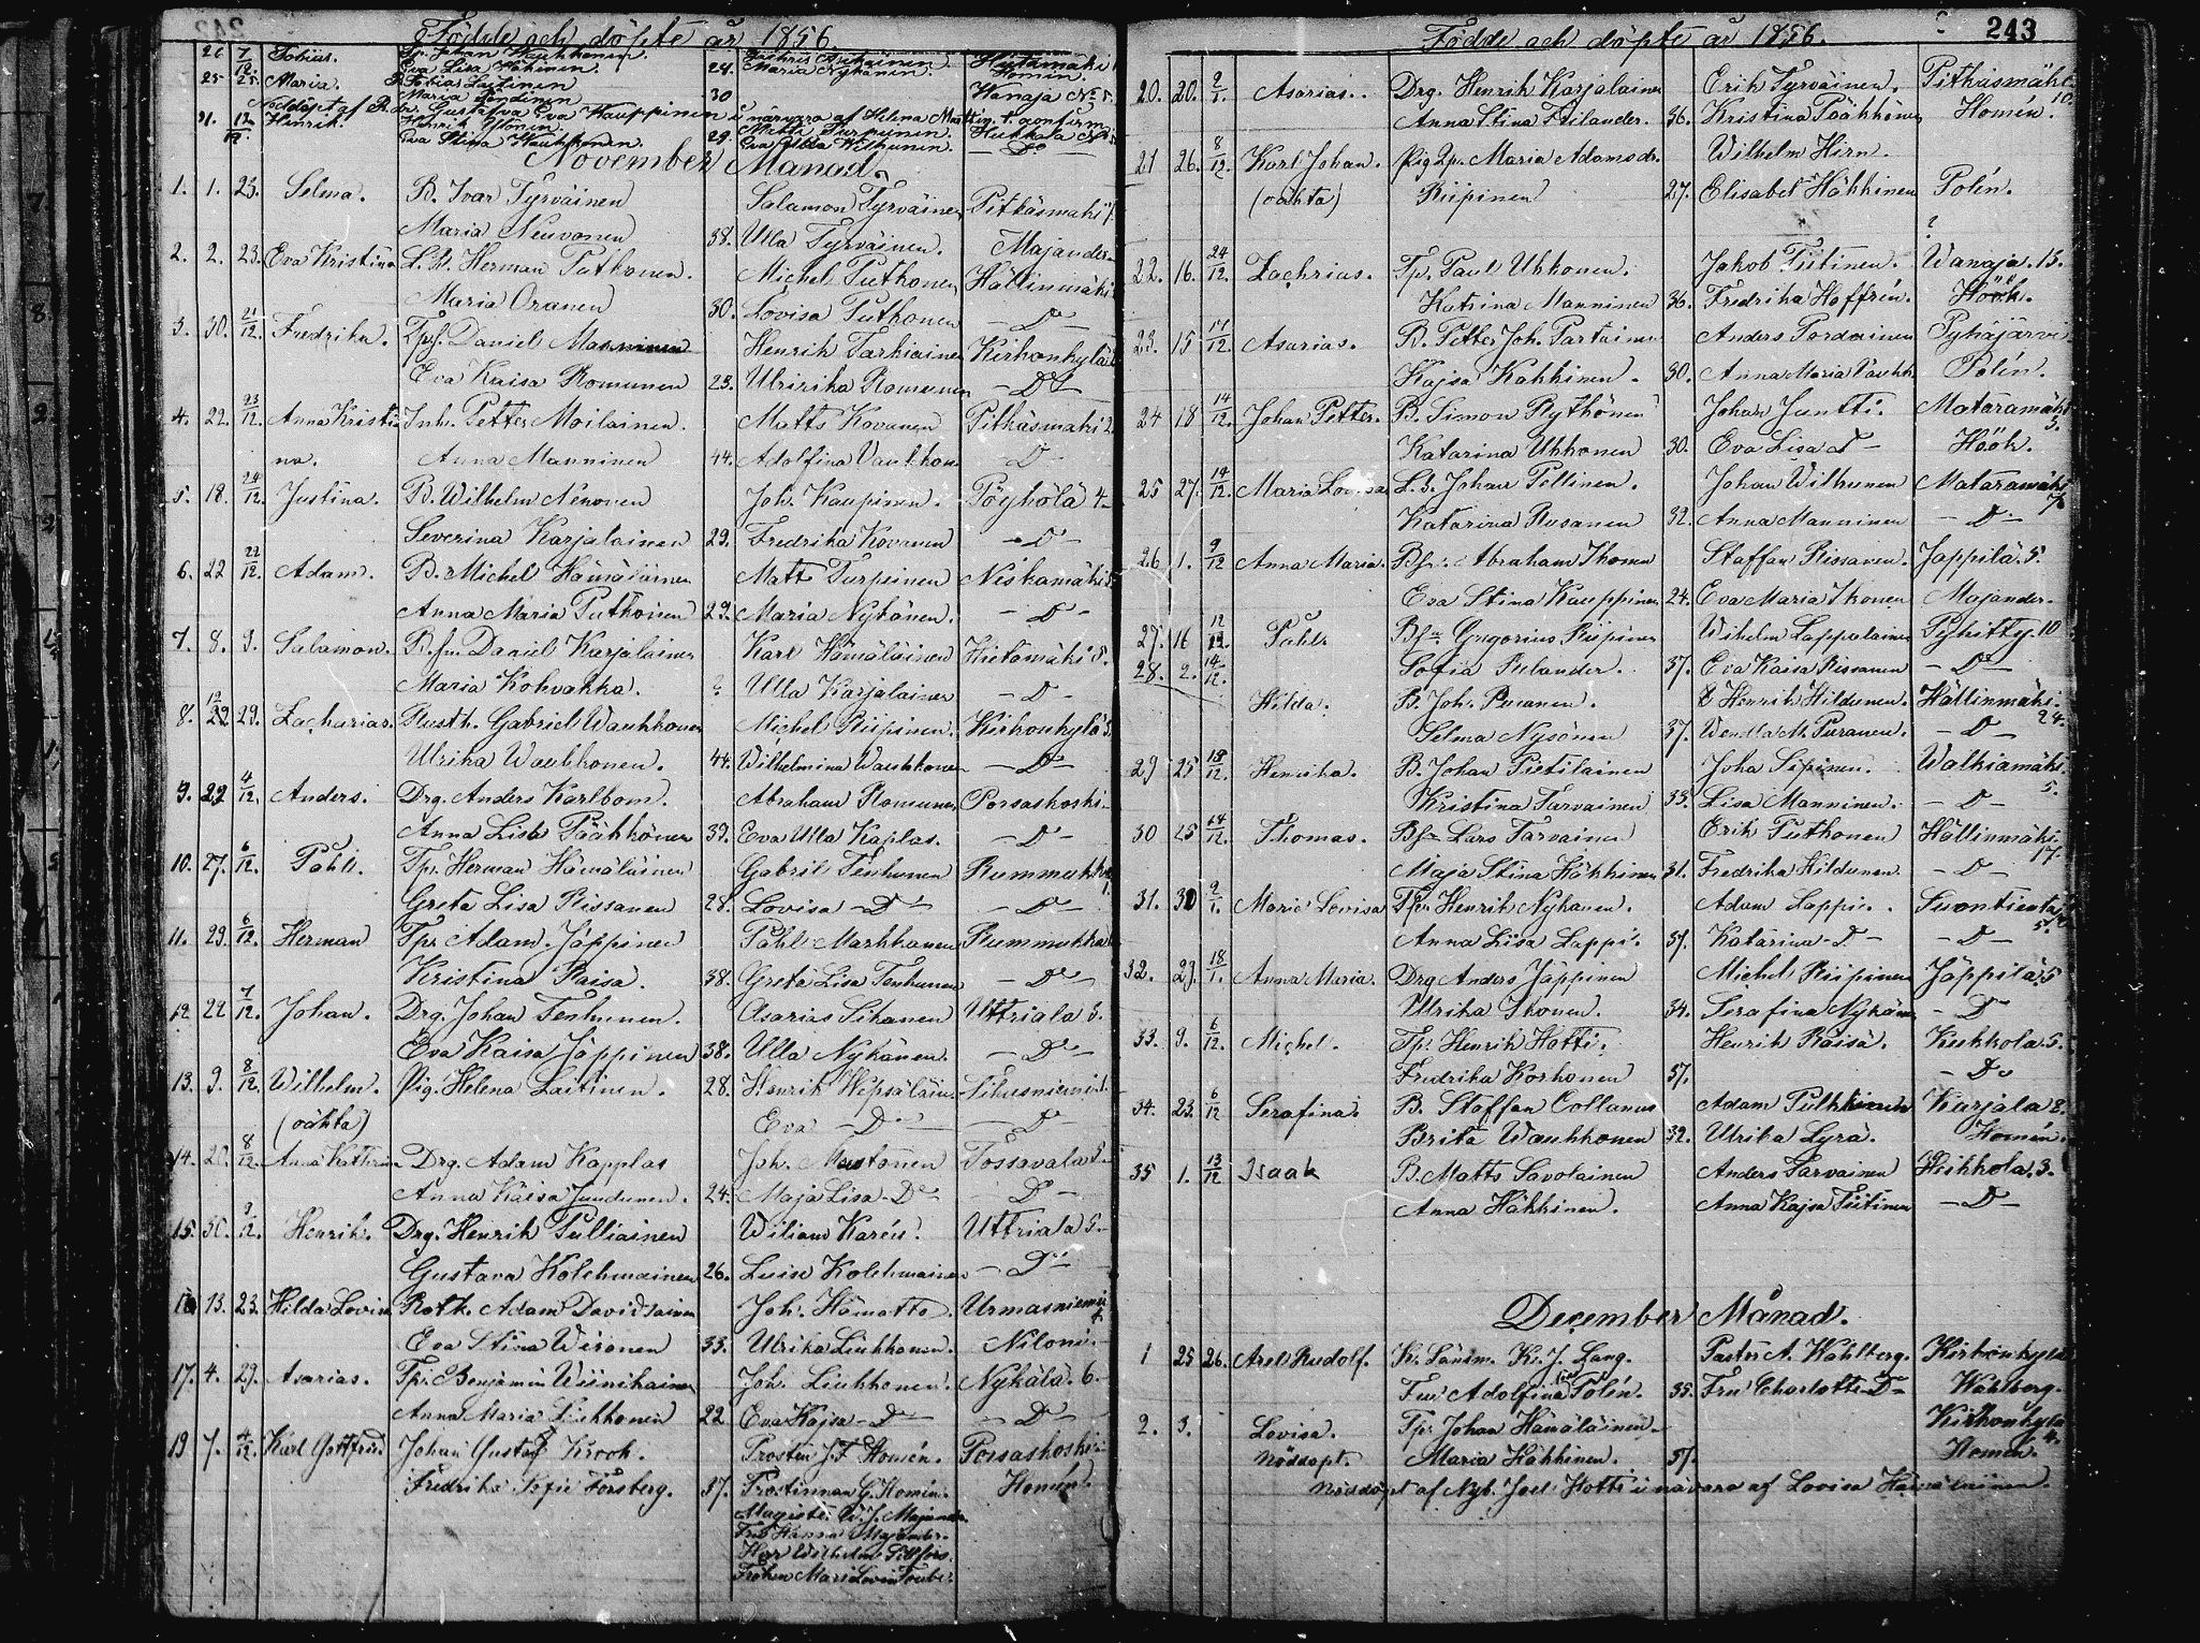 Födde och döpte år 1856.
26 7/12. Tobias. Eva Lisa Häkinen. 24. Maria Nykänen. Homén.
25 25. Maria. B. Tobias Laitinen 30 Wanaja No 5.
Nöddöpt af Gustafva Eva Kauppinen i närvaro af Helena
31. Henrik. 29. Matts Turpunen. Kukkala
Eva Stina Eva Ulla Wilhunen. D:o
November Månad.
1. 1. 23. Selma. B. Ivar Tyrväinen Salamon Tyrväinen Pitkäsmäki
Maria Neuvonen 38. Ulla Tyrväinen. Majander
2. 2. 23. Eva Kristina L.B. Herman Puthonen. Michel Puthonen Hällinmäki
Maria Oranen 30. Lovisa Puthonen D:o
3. 30. 21/12. Fredrika. Daniel Manninen Henrik Tarkiainen Kirkonkylä
Eva Kaisa Romunen 23. Ulririka Romunen D:o
4. 22. 23/12. Anna Kristi- Inh. Petter Moilainen. Matts Kovanen Pitkäsmäki 2.
na. Anna Manninen 44. Adolfina Vauhkon D
5. 18. 24/12. Justina. B. Wilhelm Nenonen Joh. Kaupinen. Pöyhölä 4.
Severina Karjalainen 29. Fredrika Kovanen D
6. 22 22/12. Adam. B. Michel Hämäläinen Matts Turpeinen Neskamäki 5.
Anna Maria Puthonen 29. Maria Nykänen. D
7. 8. 9. Salamon. B.fm. Daniel Karjalainen Karl Hämäläinen Hietamäki 5.
Maria Kohvakka. ? Ulla Karjalainen D
8. 22 29. Zacharias. Rusth. Gabriel Wauhkonen Michel Riipinen. Kirkonkylä 3.
Ulrika Wauhkonen. 44. Wilhelmina Wauhkonen D
9. 22 4/12. Anders. Drg. Anders Karlbom. Abraham Romunen Porsaskoski
Anna Lisa Pääkkönen 39. Eva Ulla Kaplas. D
10. 27. 6/12. Pahl. Tp. Herman Hämäläinen Gabriel Tenhunen Rummukka
Greta Lisa Rissanen 28. Lovisa D:o D:o
11. 29. 6/12. Herman Tpr Adam Jäppinen Påhl Markkanen Rummukka
Kristina Raisa. 38. Greta Lisa Tenhunen D:o
12 22 7/12. Johan. Drg. Johan Tenhunen. Asarias Sikanen Uttriala 3.
Eva Kaisa Jäppinen 38. Ulla Nykänen. D:o
13. 9. 8/12. Wilhelm. Pig. Helena Laitinen. 28. Henrik Hepsäläin Sikusniemi
(oäkta) Eva D:o D
14. 20. 8/12. Anna Kattrin Drg. Adam Kapplas Joh. Mustonen Tossavala
Anna Kaisa Junduren. 24. Maja Lisa D:o D
15. 30. 9/12. Henrik. Drg. Henrik Pulliainen Wiliam Karén. Uttriala 5.
Gustava Kolehmainen 26. Luise Kolehmainen D:o
16 13. 23. Hilda Lovisa Adam Davidsainen Joh. Hämatto Urmasniemi
Eva Stina Wesonen 33. Ulrika Liukkonen. Niloni.
17. 4. 29. Asarias. Tpr. Benjamin Wiinikainen Joh. Liukkonen. Nykälä. 6.
Anna Maria Liukkonen 22 Eva Kajsa D:o D
19 7. 4/12. Karl Gottfrid Johan Gustaf Krook. Prosten J.F. Homén. Porsaskoski
Fredrika Sofie Forsberg. 37. Prostinnan G. Homén. Homén.
Magister W.J. Majander
Fru Hanna Majander.
Herr Wilhelm
Fröken Mari Lovisa
Födde och döpte år 1856. 243
20. 20. 2/1. Asarias. Drg. Henrik Karjalainen Erik Tyrväinen. Pitkäsmäki
10.
Anna Stina Filander. 36. Kristina Pääkkönen Homén.
21 26. 8/12. Karl Johan. Pig Maria Adamsdr. Wilhelm Hirn.
(oäkta) Riipinen 27. Elisabet Häkkinen Polén.
?
22. 16. 24/12. Zachrias. Tp. Paul Ukkonen. Jakob Tiitinen. Wanaja. 15.
Katrina Manninen 36. Fredrika Hoffrén. Höök.
23. 15 14/12. Asarias. B. Petter Joh. Partainen Anders Pordainen Pyhäjärvi
Kajsa Kakkinen. 30. Anna Maria Vauhk. Polén.
24 18 14/12. Johan Petter. B. Simon Rythönen Johan Juntti. Mataramäki
5.
Katarina Ukkonen 30. Eva Lisa D Höök.
25 27. 14/12. Maria Lovisa L.B. Johan Pellinen. Johan Wilhunen Mataramäki
7.
Katarina Rusanen 32. Anna Manninen D
26 1. 9/12 Anna Maria. Bfr. Abraham Ikonen Staffan Rissanen. Jappilä. 5.
Eva Stina Kauppinen 24. Eva Maria Ikonen Majander.
27. 16 12/12. Påhl. Bfr Gregorius Riipinen Wilhelm Lappalainen Pyhitty. 10
28. 2. 14/12. Sofia Pulander. 37. Eva Kaisa Rissanen D:o
Hilda. B. Joh. Puranen. Henrik Hildunen. Hällinmäki.
24.
Selma Nysönen 37. Wendla M. Puranen. D
29 25 18/12. Henrika. B. Johan Pietiläinen Joha Sipinen. Walkiamäki.
5.
Kristina Tarvainen 33. Lisa Manninen. D
30 25 14/12. Thomas. Bfr Lars Tarvainen Erik Puthonen Hällinmäki
17.
Maja Stina Häkkinen 31. Fredrika Hildunen. D
31. 30 2/1. Maria Lovisa Tpr Henrik Nykanen. Adam Lappi. Suontientaka
5.
Anna Lisa Lappi. 37. Katarina D D
32. 29. 18/1. Anna Maria. Drg Anders Jäppinen Michel Riipinen Jäppilä. 5
Ulrika Ikonen. 34. Serafina Nykänen D
33. 9. 6/12. Michel. Tp. Henrik Hotti. Henrik Raisä. Kukkola. 5.
Fredrika Korhonen 37. D:o
34. 23. 6/12 Serafina. B. Staffan Collanus Adam Pulkkinen Karjala 8.
Brita Wauhkonen 32. Ulrika Lyra. Homén.
35 1. 13/12 Isaak B. Matts Savolainen Anders Tarvainen Heikkola. 3.
Anna Häkkinen. Anna Kajsa Tiitinen D
December Månad.
1 25 26. Axel Rudolf. Kr. Länsm. K. J. Lang. Pastor A. Wahlberg. Kirkonkylä
Fru Adolfina Polén. 35. Fru Charlotte D Wahlberg.
2. 3. Lovisa. Tp. Johan Hämäläinen. Kirkonkylä
4.
Nöddöpt. Maria Häkkinen. 37. Homén.
Nöddöpt af Nyb. Joel Hotti i närvaro af Lovisa Hämäläinen.